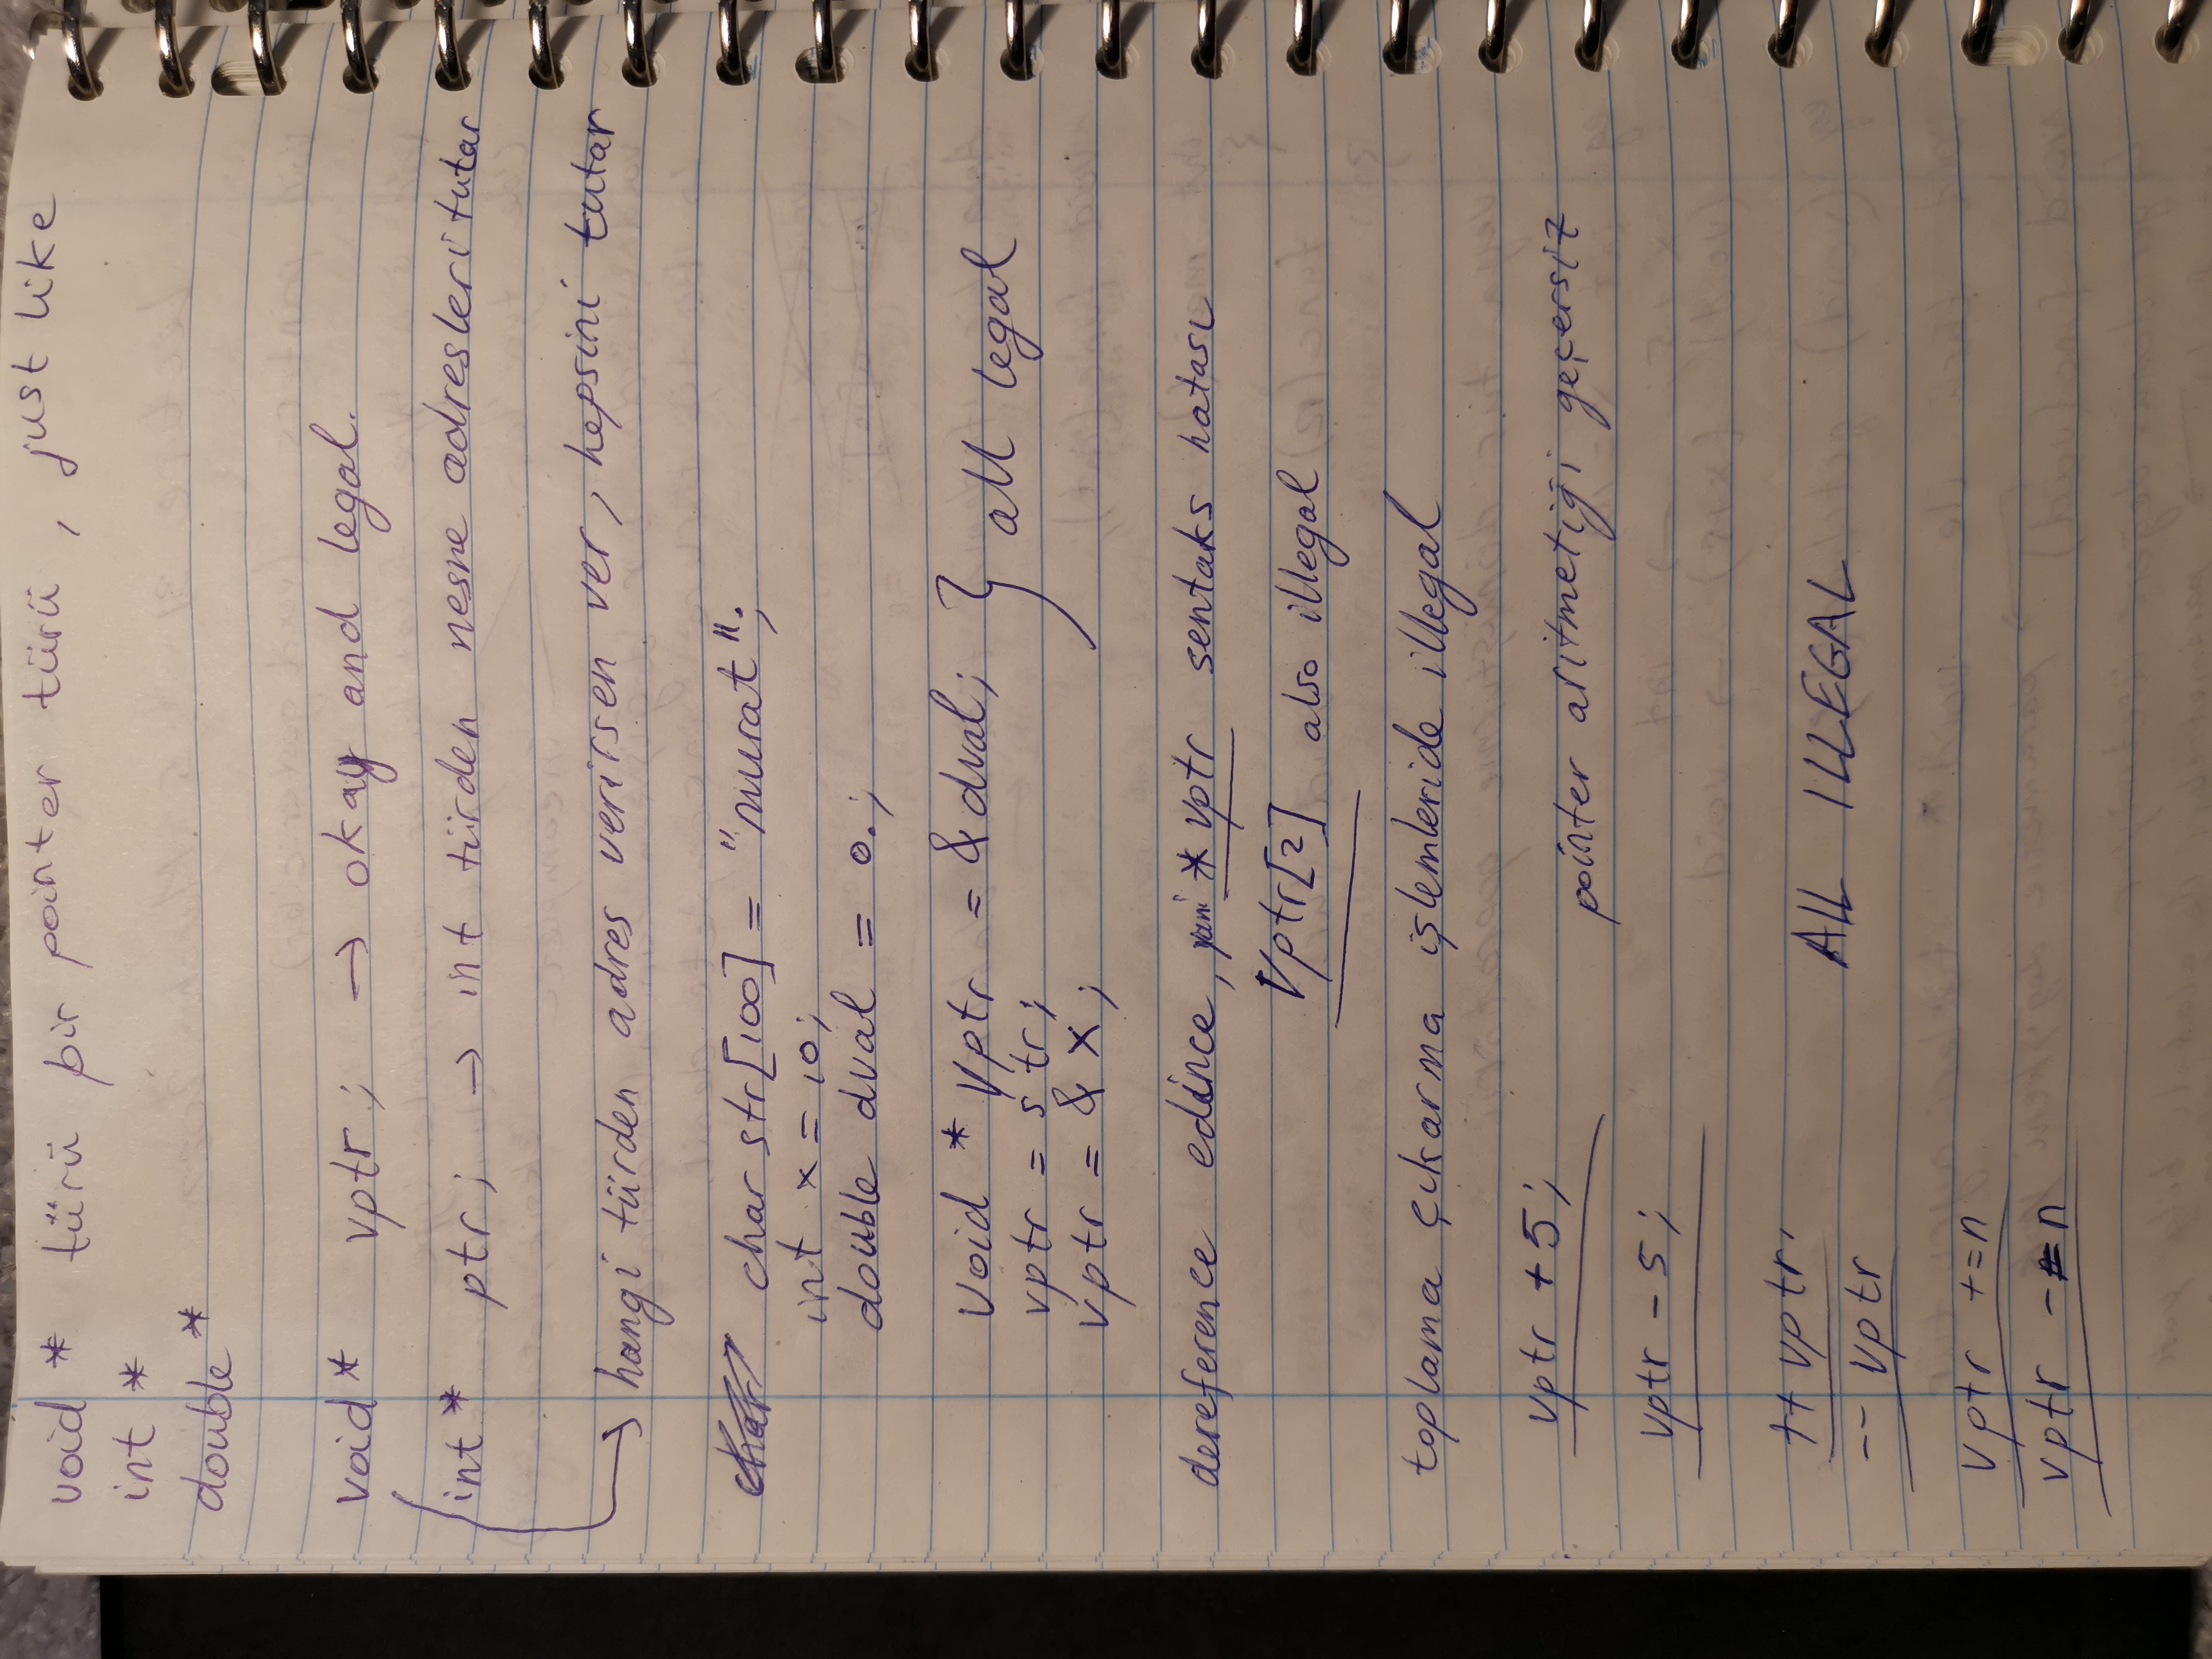 void * türü bir pointer türü, just like
int *
double *
void * vptr; → okay and legal.
int * ptr; → int türden nesne adresleri tutar
→ hangi türden adres verirsen ver, hepsini tutar
char str[100] = "murat";
int x = 10;
double dval = 0.;
void * vptr = &dval;
vptr = str;
vptr = &x;
} all legal
dereference edince, yani *vptr sentaks hatası
vptr[2] also illegal
toplama çıkarma işlemleride illegal
vptr + 5;
pointer aritmetiği geçersiz
vptr - 5;
++vptr;
ALL ILLEGAL
--vptr
vptr +=n
vptr -=n